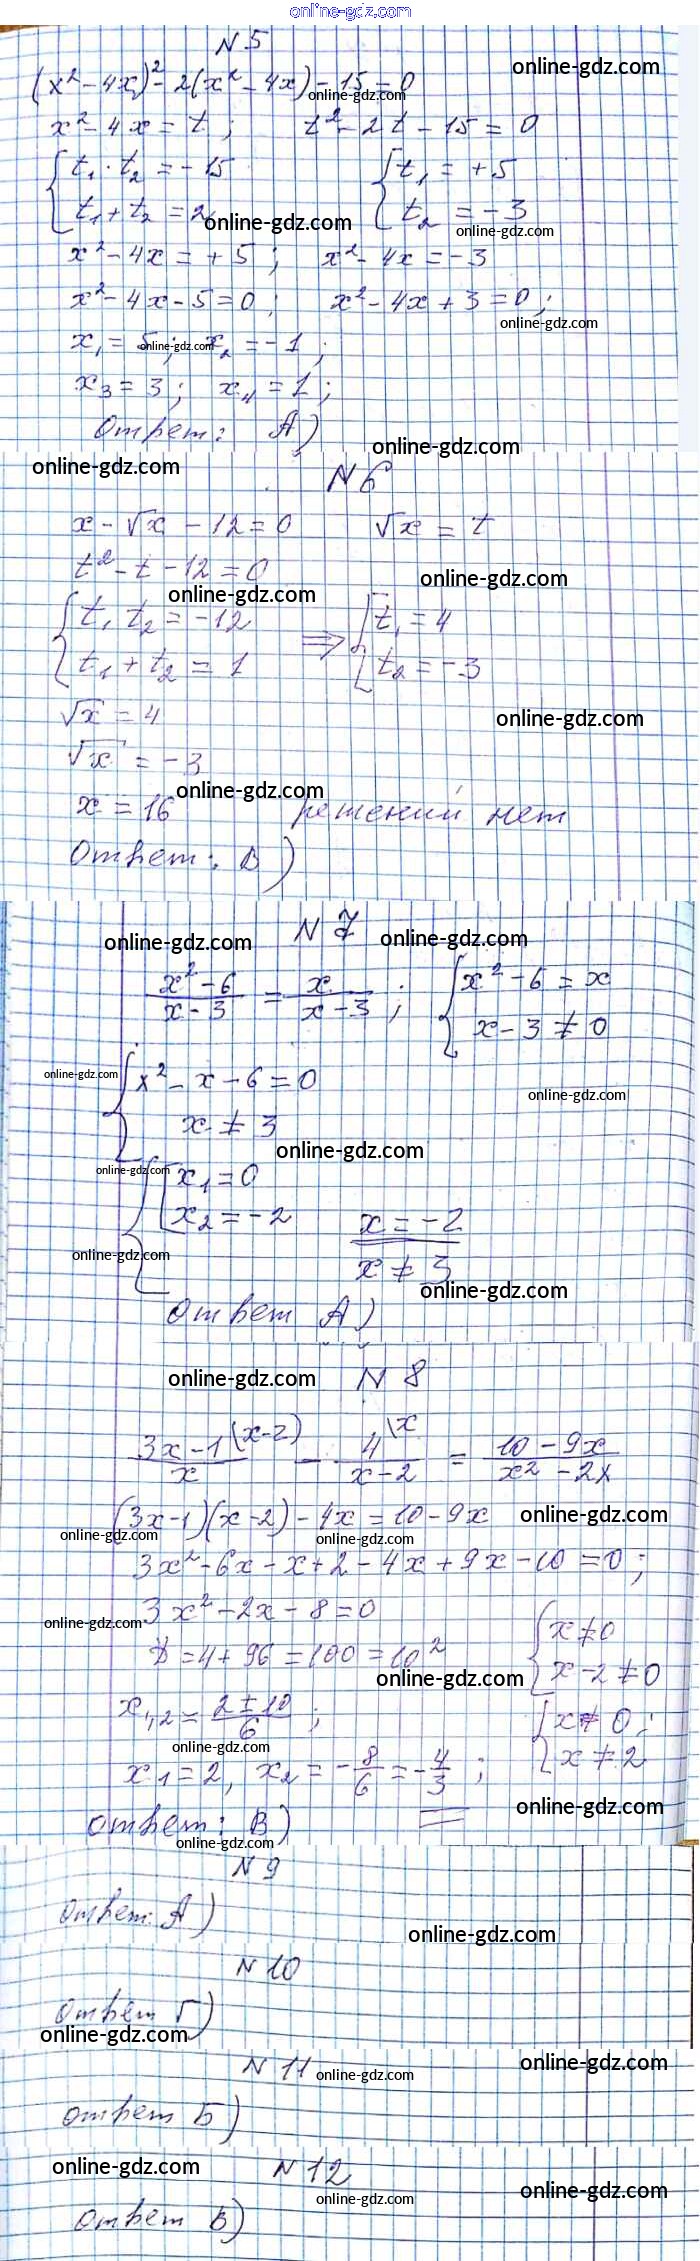 online-gdz.com
N 5
online-gdz.com
(x² - 4x)² - 2(x² - 4x) - 15 = 0
online-gdz.com
x² - 4x = t ; t² - 2t - 15 = 0
{ t₁ · t₂ = -15 { t₁ = +5
t₁ + t₂ = 2 t₂ = -3
online-gdz.com online-gdz.com
x² - 4x = +5 ; x² - 4x = -3
x² - 4x - 5 = 0 ; x² - 4x + 3 = 0 ;
online-gdz.com
x₁ = 5 ; x₂ = -1 ;
online-gdz.com
x₃ = 3 ; x₄ = 1 ;
Ответ: А)
online-gdz.com
online-gdz.com
N 6
x - √x - 12 = 0 √x = t
t² - t - 12 = 0
online-gdz.com online-gdz.com
{ t₁ t₂ = -12 ⇒ [ t₁ = 4
t₁ + t₂ = 1 t₂ = -3
√x = 4
online-gdz.com
√x = -3
online-gdz.com
x = 16 решений нет
Ответ: В)
N 7
online-gdz.com online-gdz.com
(x² - 6)/(x - 3) = x/(x - 3) ; { x² - 6 = x
x - 3 ≠ 0
online-gdz.com
{ x² - x - 6 = 0
online-gdz.com
x ≠ 3
online-gdz.com
online-gdz.com
{ [ x₁ = 0
x₂ = -2 x = -2
online-gdz.com
x ≠ 3
online-gdz.com
Ответ А)
online-gdz.com N 8
(3x - 1)/x \(x-2) - 4/(x - 2) \x = (10 - 9x)/(x² - 2x)
(3x-1)(x-2) - 4x = 10 - 9x
online-gdz.com
online-gdz.com online-gdz.com
3x² - 6x - x + 2 - 4x + 9x - 10 = 0 ;
3x² - 2x - 8 = 0
online-gdz.com
{ x ≠ 0
D = 4 + 96 = 100 = 10²
x - 2 ≠ 0
online-gdz.com
x₁,₂ = (2 ± 10)/6 ; { x ≠ 0 ;
online-gdz.com
x₁ = 2, x₂ = -8/6 = -4/3 ; x ≠ 2
online-gdz.com
Ответ: В)
online-gdz.com
N 9
Ответ: А)
online-gdz.com
N 10
Ответ Г)
online-gdz.com
N 11
online-gdz.com online-gdz.com
Ответ Б)
online-gdz.com N 12
online-gdz.com online-gdz.com
Ответ В)